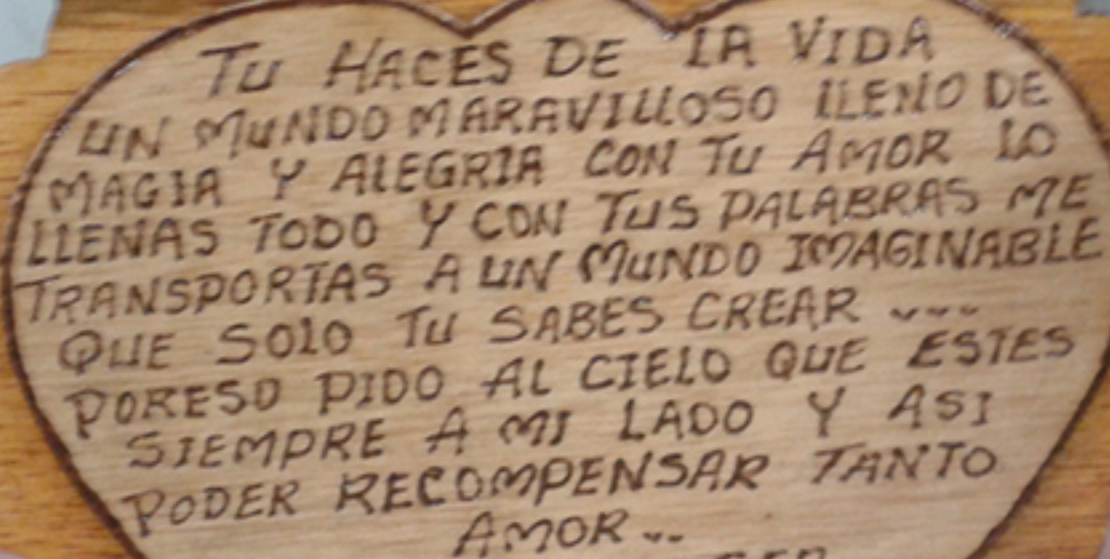 TU HACES DE LA VIDA
UN MUNDO MARAVILLOSO LLENO DE
MAGIA Y ALEGRIA CON TU AMOR LO
LLENAS TODO Y CON TUS PALABRAS ME
TRANSPORTAS A UN MUNDO IMAGINABLE
QUE SOLO TU SABES CREAR ....
PORESO PIDO AL CIELO QUE ESTES
SIEMPRE A MI LADO Y ASI
PODER RECOMPENSAR TANTO
AMOR..